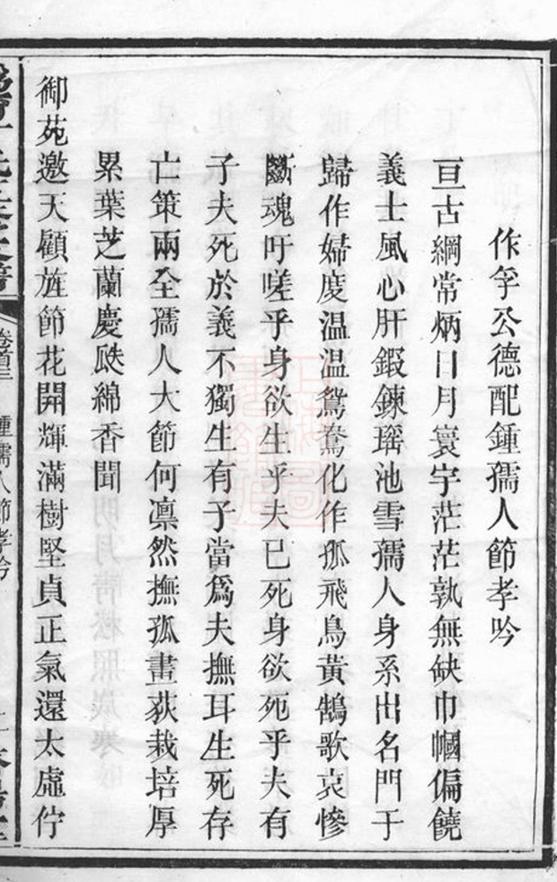 作孚公德配鍾孺人節孝吟
亘古綱常炳日月寰宇茫茫孰無缺巾幗偏饒
義士風心肝鍜鍊瑤池雪孺人身系出名門于
歸作婦度温温鴛鴦化作孤飛鳥黃鵠歌哀慘
斷魂吁嗟乎身欲生乎夫已死身欲死乎夫有
子夫死於義不獨生有子當爲夫撫耳生死存
亡策兩全孺人大節何凛然撫孤畫荻栽培厚
累葉芝蘭慶瓞綿香聞
御苑邀天顧旌節花開輝滿樹堅貞正氣還太虛佇
卷首三 鍾孺人節孝吟